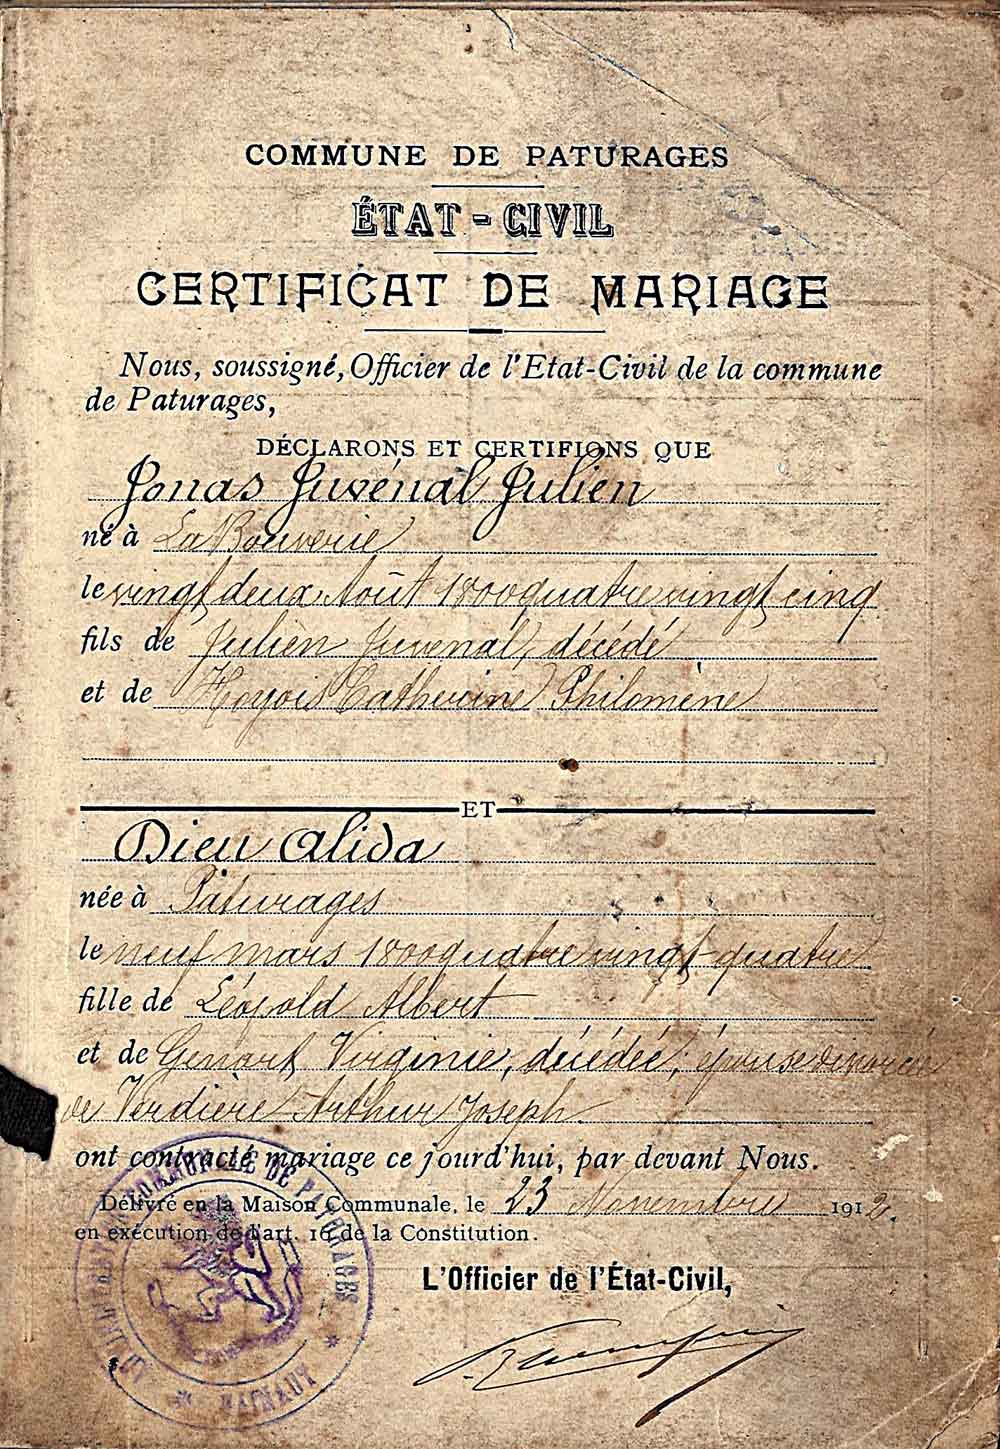 COMMUNE DE PATURAGES
ÉTAT-CIVIL
CERTIFICAT DE MARIAGE
Nous, soussigné, Officier de l'Etat-Civil de la commune
de Paturages,
DÉCLARONS ET CERTIFIONS QUE
Jonas Juvénal Julien
né à La Bouverie
le vingt deux Août 1800 quatre vingt cinq
fils de Julien Juvenal, décédé
et de Hoyois Catherine Philomène
ET
Dieu Alida
née à Pâturages
le neuf mars 1800 quatre vingt-quatre
fille de Léopold Albert
et de Genart Virginie, décédée; épouse divorcée
de Verdière Arthur Joseph.
ont contracté mariage ce jourd'hui, par devant Nous.
Délivré en la Maison Communale, le 23 Novembre 1912.
en exécution de l'art. 16 de la Constitution.
L'Officier de l'État-Civil,
COMMUNALE DE PATURAGES
* HAINAUT *